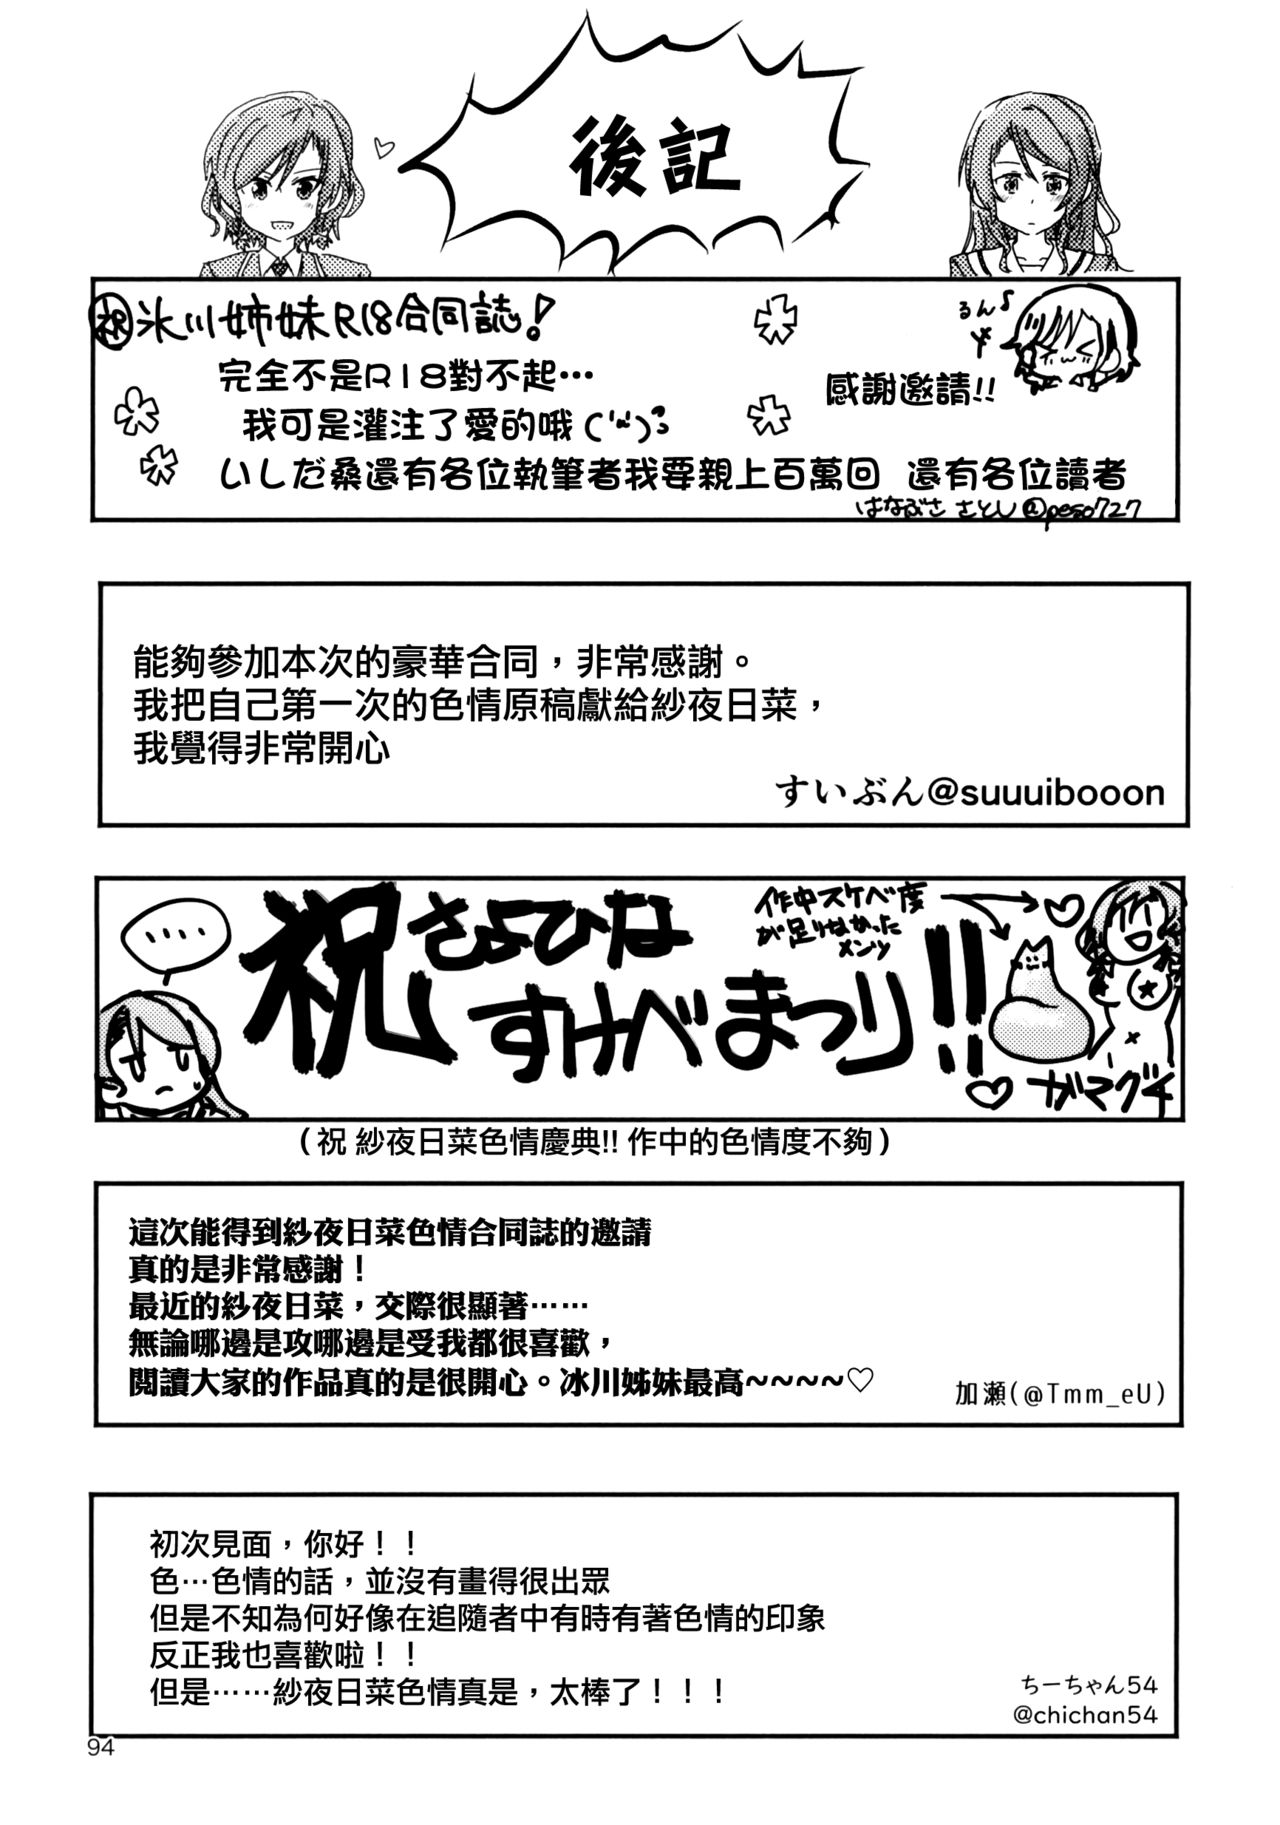 後記
㊗氷川姉妹R18合同誌!
るん♪
完全不是R18對不起…
感謝邀請!!
我可是灌注了愛的哦
いしだ桑還有各位執筆者我要親上百萬回 還有各位讀者
はなぶさ さとし@peso727
能夠參加本次的豪華合同，非常感謝。
我把自己第一次的色情原稿獻給紗夜日菜，
我覺得非常開心
すいぶん@suuuibooon
‥‥
祝さよひな
すけべまつり!!
作中スケベ度
が足りなかった
メンツ
♡ガマグチ
（祝 紗夜日菜色情慶典!! 作中的色情度不夠）
這次能得到紗夜日菜色情合同誌的邀請
真的是非常感謝！
最近的紗夜日菜，交際很顯著……
無論哪邊是攻哪邊是受我都很喜歡，
閱讀大家的作品真的是很開心。冰川姊妹最高~~~~♡
加瀬(@Tmm_eU)
初次見面，你好！！
色…色情的話，並沒有畫得很出眾
但是不知為何好像在追隨者中有時有著色情的印象
反正我也喜歡啦！！
但是……紗夜日菜色情真是，太棒了！！！
ちーちゃん54
@chichan54
94